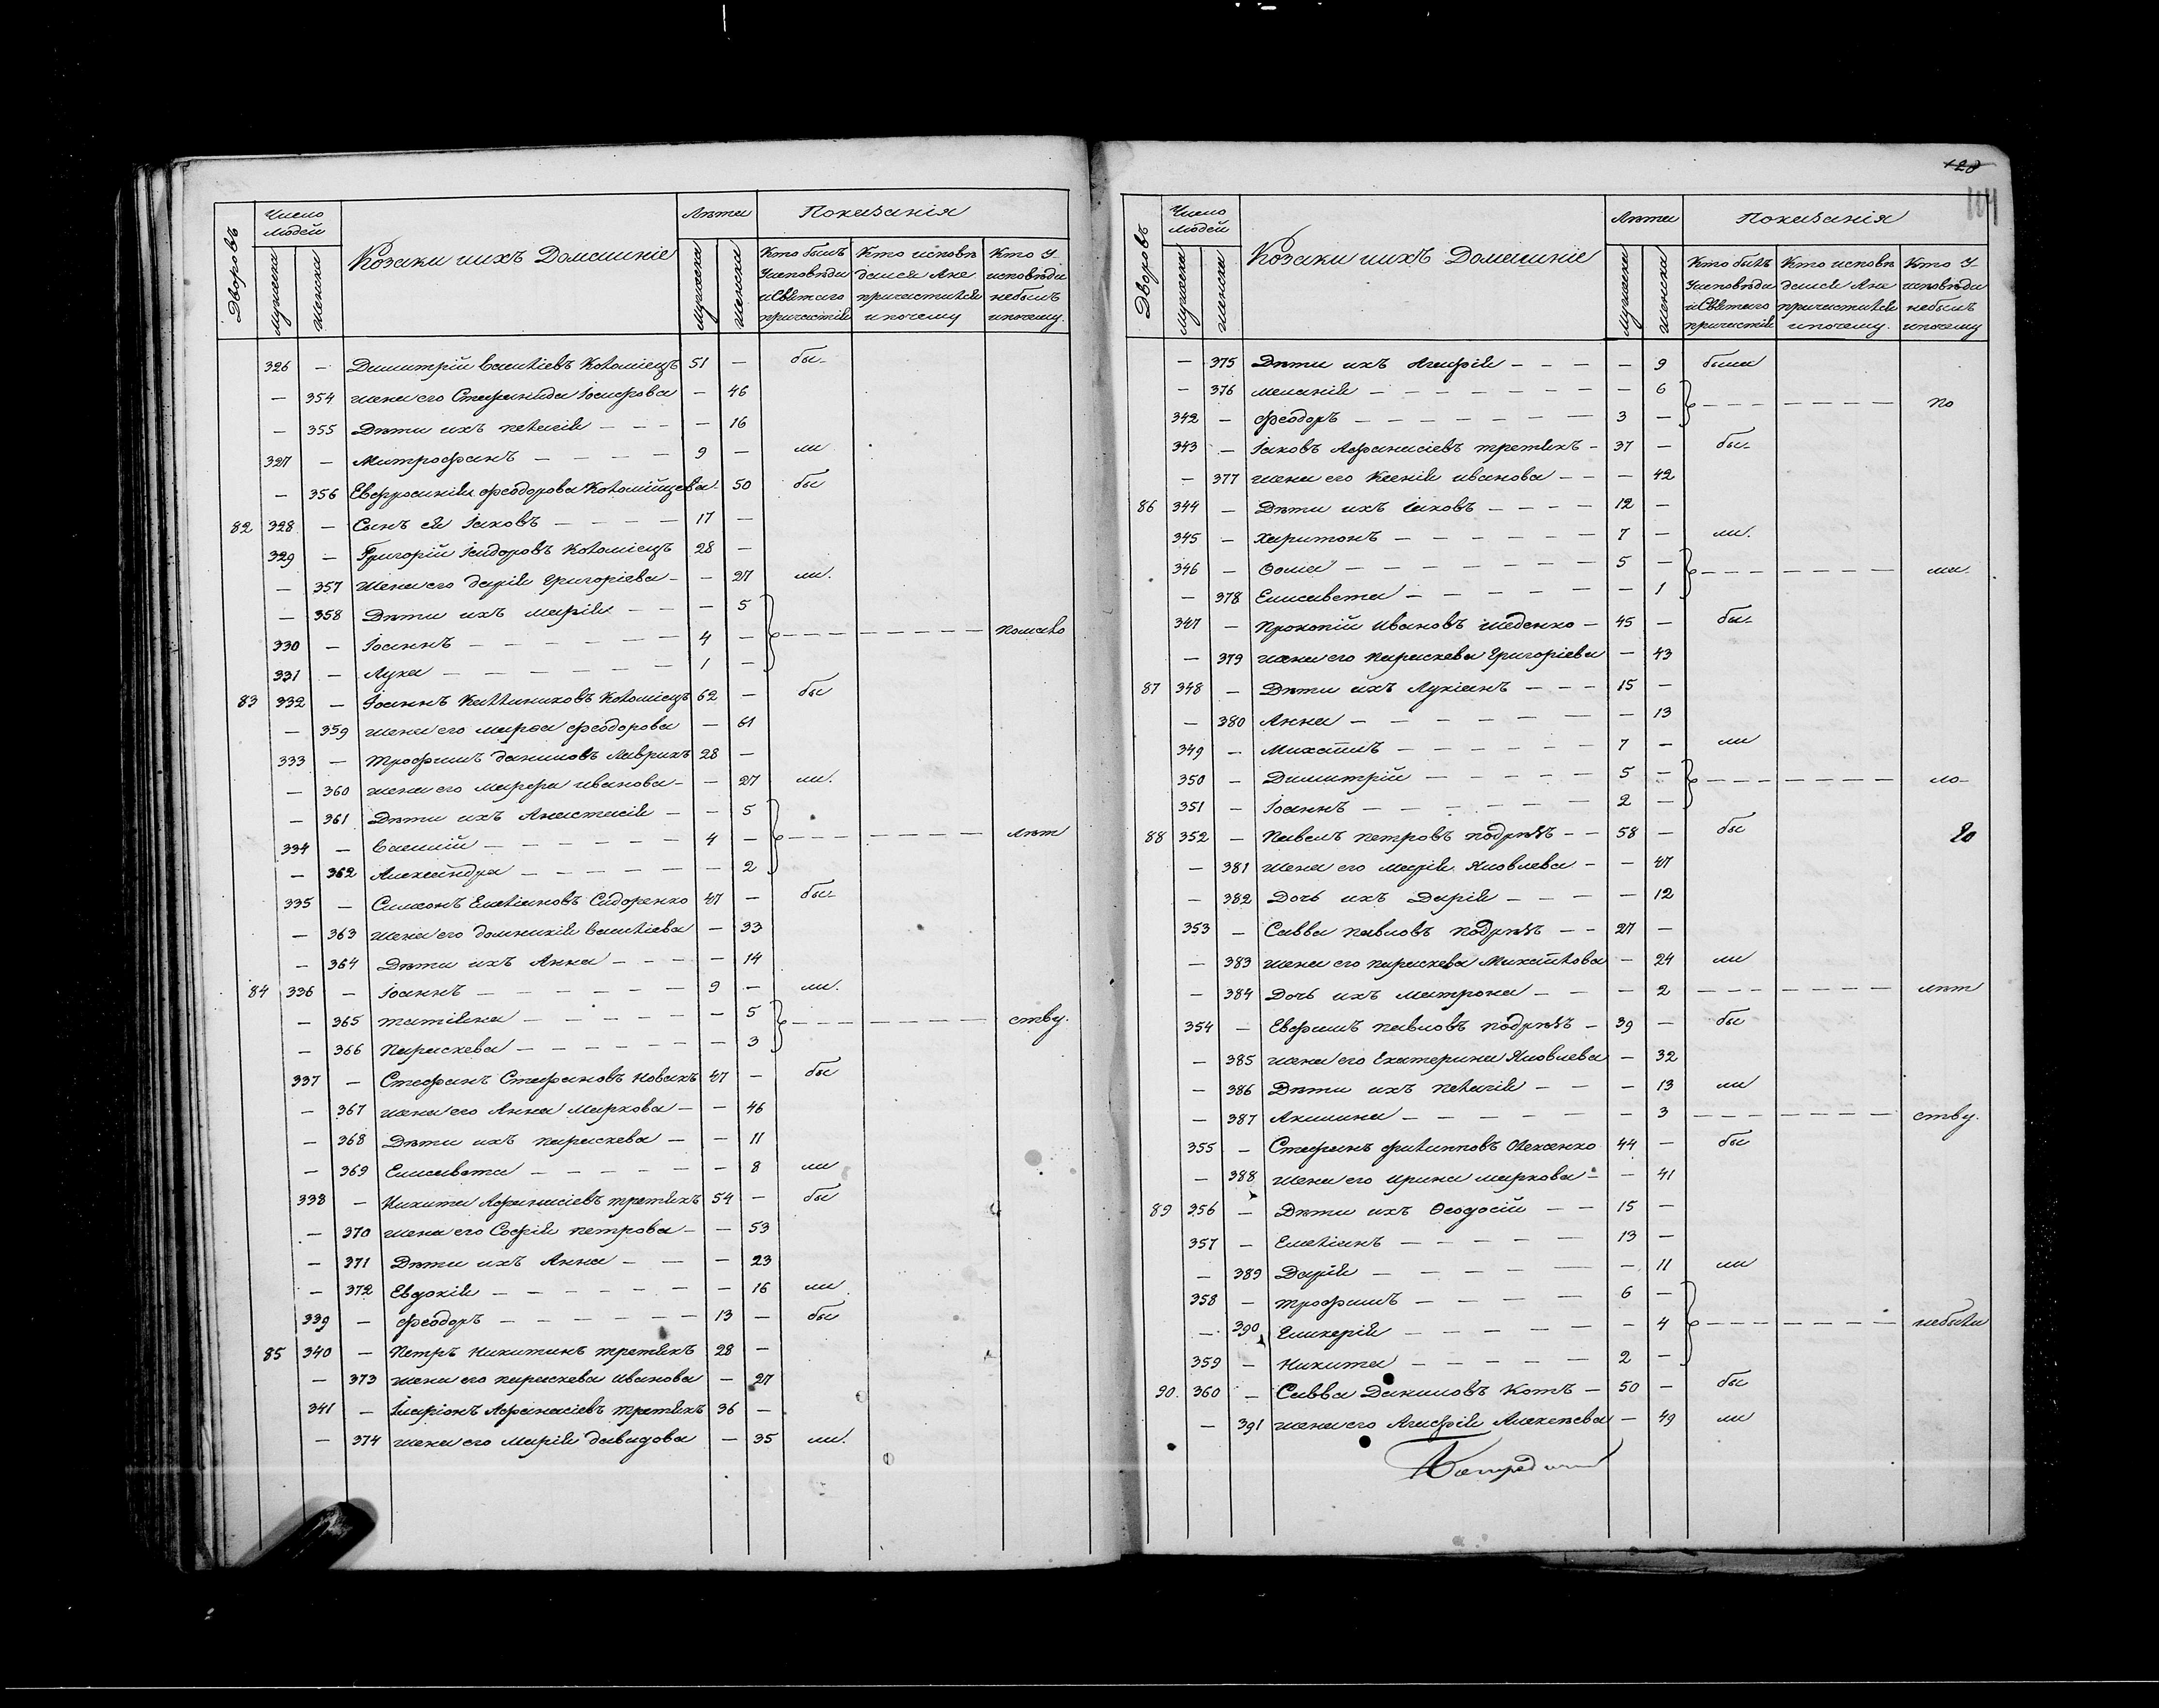 Дворовъ Число Людей Козаки ихъ Домашніе Лѣта Показанія
мужеска женска мужеска женска
Кто былъ Кто исповѣ Кто у
уисповѣди дался Ане исповѣди
иСвятаго причастился небылъ
причастія ипочему ипочему.
326 — Димитрій Василіевъ Коломіецъ 51 — бы-
— 354 жена его Стефанида Іосифова — 46
— 355 Дѣти ихъ Пелагія — — — — 16
327 — Митрофанъ — — — — 9 — ли
— 356 Евфросинія Феодорова Коломійцева — 50 бы
82 328 — Сынъ ея Іаковъ — — — — 17 —
329 — Григорій Ісидоровъ Коломіецъ 28 —
— 357 Жена его Дарія Григоріева — — 27 ли.
— 358 Дѣти ихъ Марія — — — 5
330 — Іоаннъ — — — — — 4 — — — — — — — — — помало
331 — Лука — — — — — 1 —
83 332 — Іоаннъ Каллиниковъ Коломіецъ 62 — бы
— 359 жена его Марѳа Феодорова — 61
333 — Трофимъ Даниловъ Лаврикъ 28 —
— 360 жена его Марфа Иванова — — 27 ли.
— 361 Дѣти ихъ Анастасія — — 5
334 — Василій — — — — — — 4 — — — — — — — — лѣт
— 362 Александра — — — — — — 2
335 — Симеонъ Емеліановъ Сидоренко 47 — бы-
— 363 жена его Домникія Василіева — 33
— 364 Дѣти ихъ Анна — — — — 14
84 336 — Іоаннъ — — — — — — 9 — ли.
— 365 Татіяна — — — — — — 5
— 366 Параскева — — — — — — — 3 — — — — — — — ству.
337 — Стефанъ Стефановъ Новакъ 47 — бы
— 367 жена его Анна Маркова — — 46
— 368 Дѣти ихъ Параскева — — 11
— 369 Елисавета — — — — — — 8 ли
338 — Никита Афанасіевъ Третякъ 54 — бы
— 370 жена его Софія Петрова — — 53
— 371 Дѣти ихъ Анна — — — 23
— 372 Евдокія — — — — — — 16 ли
339 — Феодоръ — — — — — — 13 — бы
85 340 — Петръ Никитинъ Третякъ 28 —
— 373 жена его Параскева Иванова — 27
341 — Іларіонъ Афанасіевъ Третякъ 36 —
— 374 жена его Марія Давидова — 35 ли.
128
104
Дворовъ Число Людей Козаки ихъ Домашніе Лѣта Показанія
мужеска женска мужеска женска
Кто былъ Кто исповѣ Кто у-
уисповѣди дался Ане исповѣди
иСвятаго причастился небылъ
причастія ипочему. ипочему
— 375 Дѣти ихъ Агафія — — — — 9 были
— 376 Меланія — — — — — — — — 6
342 — Феодоръ — — — — — — — 3 — — — — — — — — по
343 — Іаковъ Афанасіевъ Третякъ - 37 — бы-
— 377 жена его Ксенія Иванова — — — 42
86 344 — Дѣти ихъ Іаковъ — — — — 12 —
345 — Харитонъ — — — — — — 7 — ли.
346 — Ѳома — — — — — — — 5 — — — — — — — — ма-
— 378 Елисавета — — — — — — — 1
347 — Прокопій Ивановъ Шеденко — 45 — бы-
— 379 жена его Параскева Григоріева — 43
87 348 — Дѣти ихъ Лукіанъ — — — 15 —
— 380 Анна — — — — — — — 13
349 — Михаилъ — — — — — — 7 — ли
350 — Димитрій — — — — — 5 — — — — — — — — ло-
351 — Іоаннъ — — — — — — 2 —
88 352 — Павелъ Петровъ Подрѣзъ — — 58 — бы
— 381 жена его Марія Яковлева — — 47
— 382 Дочь ихъ Дарія — — — — 12
353 — Савва Павловъ Подрѣзъ — — 27 —
— 383 жена его Параскева Михайлова — 24 ли
— 384 Дочь ихъ Матрона — — — 2 — — — — — — — лѣт
354 — Евфимъ Павловъ Подрѣзъ — 39 — бы
— 385 жена его Екатерина Яковлева — 32
— 386 Дѣти ихъ Пелагія — — — 13 ли
— 387 Акилина — — — — — — — 3 — — — — — — — ству.
355 — Стефанъ Филипповъ Олехенко 44 — бы
— 388 жена его Ирина Маркова — — 41
89 356 — Дѣти ихъ Ѳеодосій — — 15 —
357 — Емеліанъ — — — — — 13 —
— 389 Дарія — — — — — — 11 ли
358 — Трофимъ — — — — — 6 —
— 390 Гликерія — — — — — — 4 — — — — — — — небыли
359 — Никита — — — — — 2 —
90. 360 — Савва Даниловъ Котъ — 50 — бы
— 391 жена его Агафія Алексѣева — 49 ли